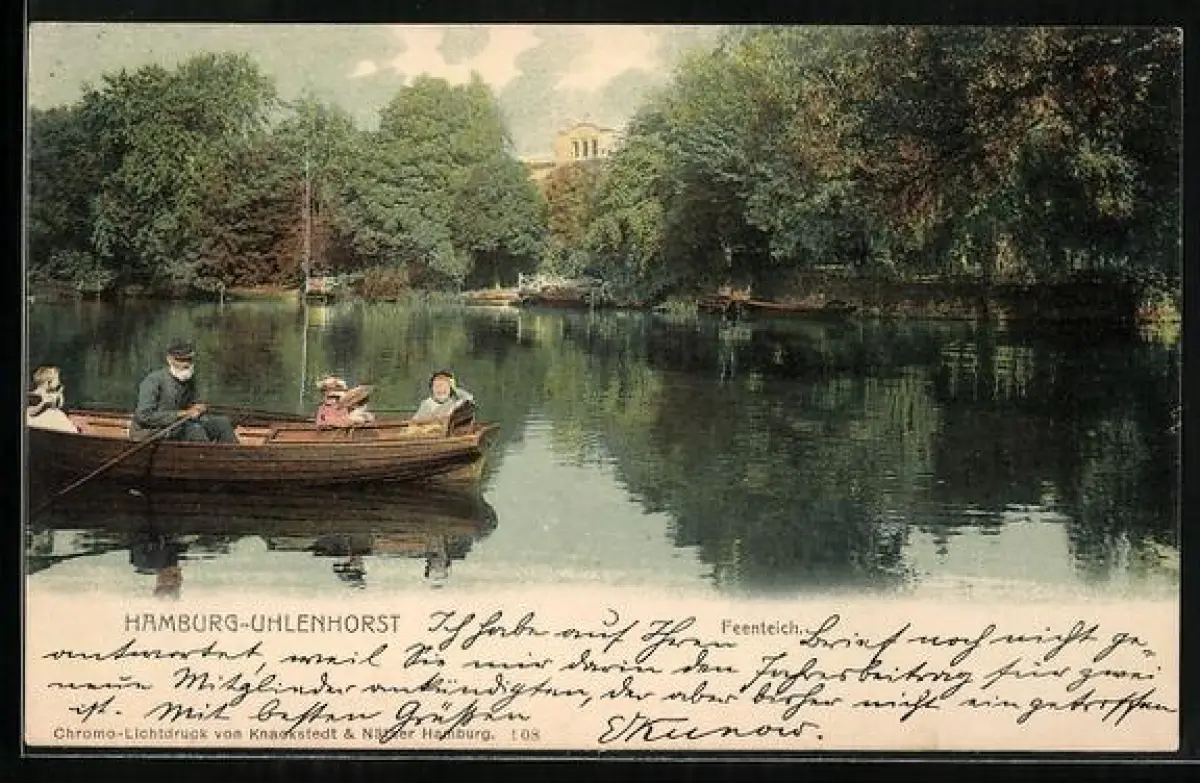 HAMBURG-UHLENHORST Ich habe auf Ihren Feenteich. Brief noch nicht ge-
antwortet, weil Sie mir darin den Jahresbeitrag für zwei
neue Mitglieder ankündigten, der aber bisher nicht eingetroffen
ist. Mit besten Grüßen EKunow.
Chromo-Lichtdruck von Knackstedt & Näther Hamburg. 108